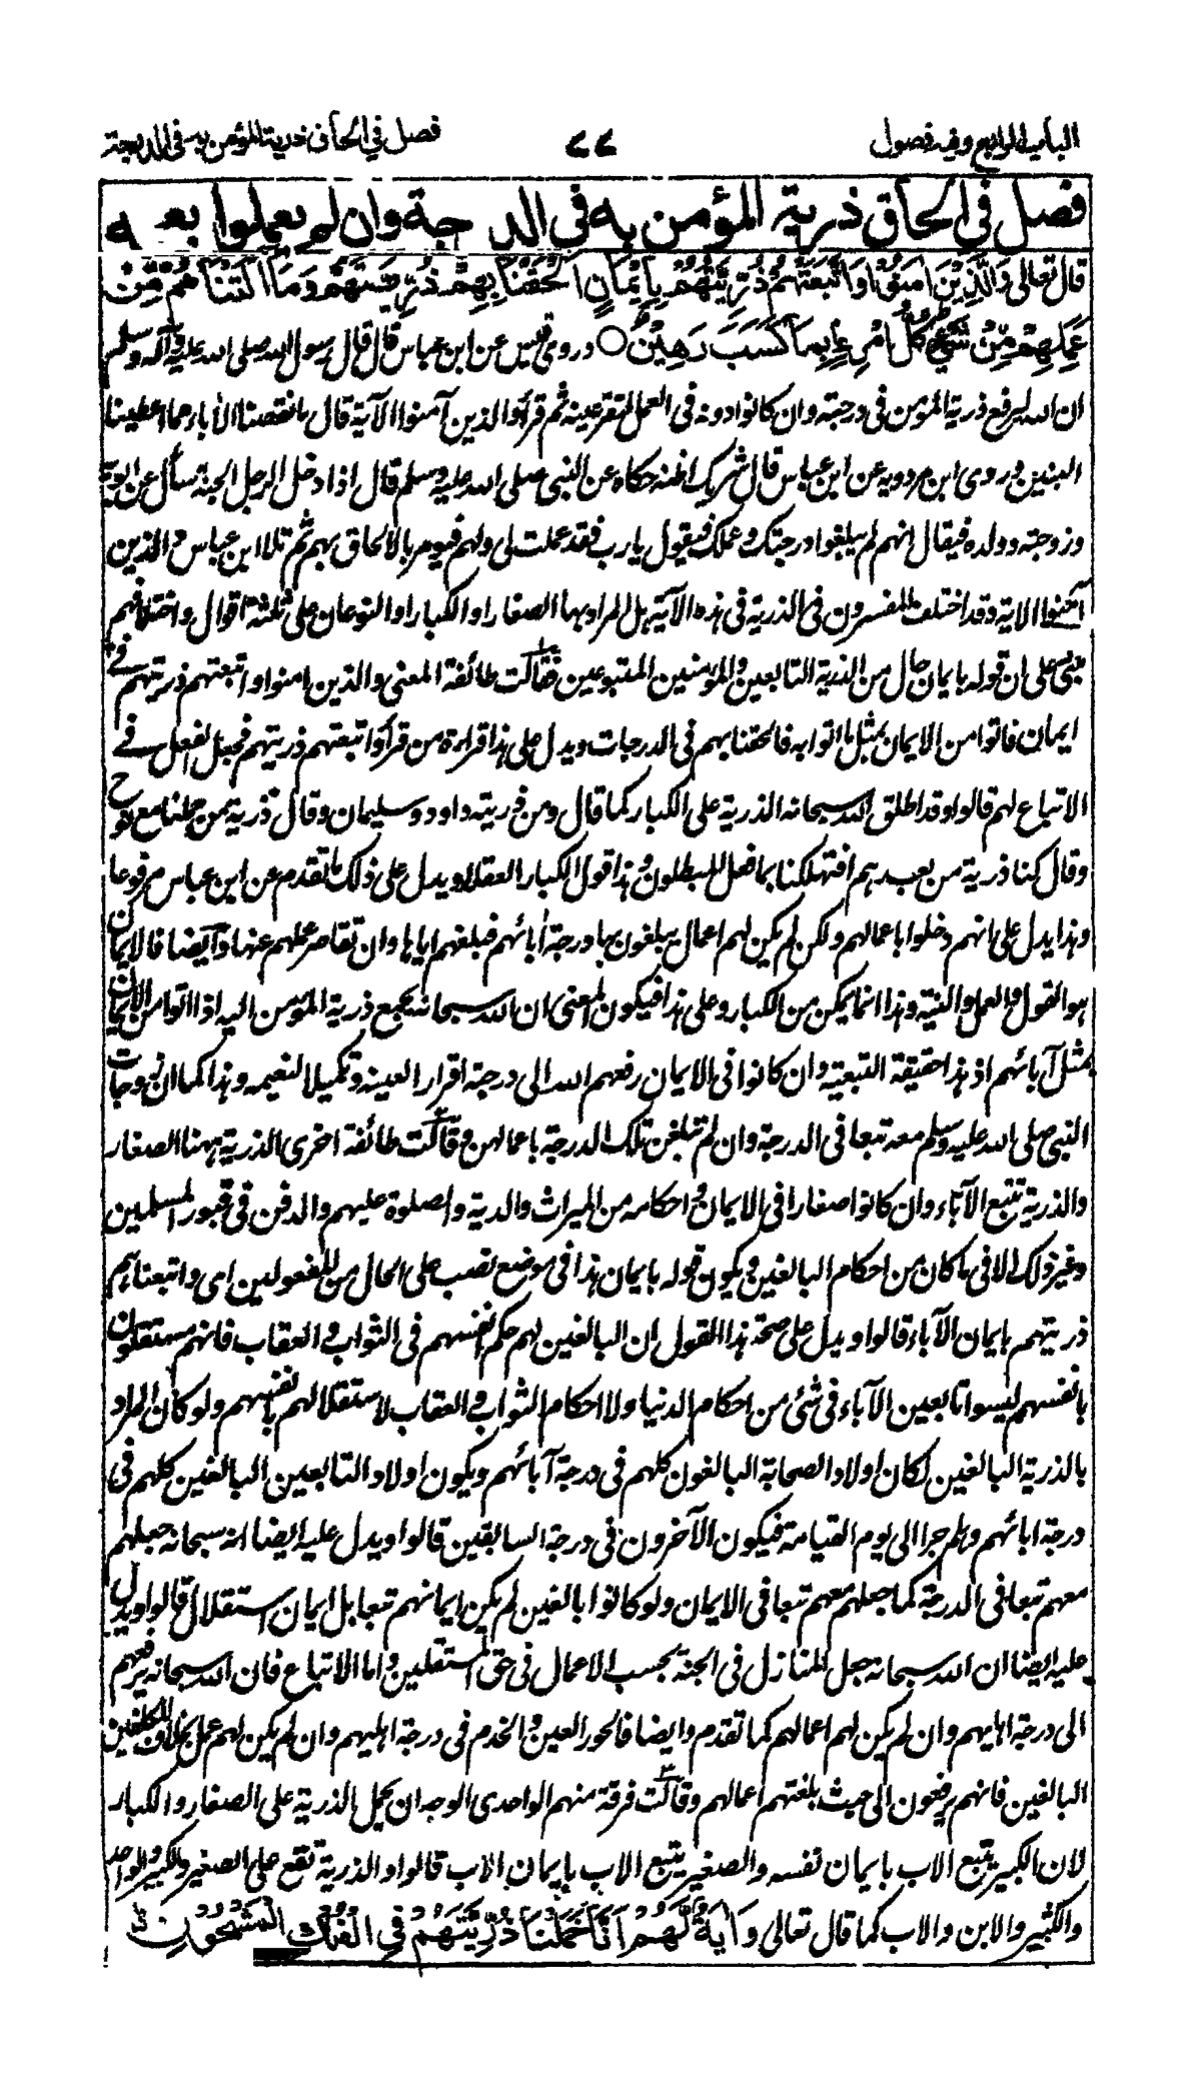 الباب الرابع وفيه فصول ۷۷ فصل في الحاق ذرية المؤمن به في الدرجة
فصل في الحاق ذرية المؤمن به في الدرجة وان لم يعملوا بعمله
قال تعالى وَالَّذِيْنَ اٰمَنُوْا وَاتَّبَعَتْهُمْ ذُرِّيَّتُهُمْ بِاِيْمَانٍ اَلْحَقْنَا بِهِمْ ذُرِّيَّتَهُمْ وَمَا اَلَتْنَاهُمْ مِّنْ
عَمَلِهِمْ مِّنْ شَيْءٍ كُلُّ امْرِءٍ بِمَا كَسَبَ رَهِيْنٌ ○ وروى قيس عن ابن عباس قال قال رسول الله صلى الله عليه وآله وسلم
ان الله ليرفع ذرية المؤمن في درجته وان كانوا دونه في العمل لتقر عينه ثم قرأ والذين آمنوا الآية قال ما نقصنا الآباء مما اعطينا
البنين وروى ابن مردويه عن ابن عباس قال شريك اظنه حكاه عن النبي صلى الله عليه وسلم قال اذا دخل الرجل الجنة سأل عن ابويه
وزوجته وولده فيقال انهم لم يبلغوا درجتك وعملك فيقول يا رب فقد عملت لي ولهم فيؤمر بالالحاق بهم ثم تلا ابن عباس والذين
آمنوا الاية وقد اختلف المفسرون في الذرية في هذه الآية هل المراد بها الصغار او الكبار او النوعان على ثلثة اقوال واختلافهم
مبني على ان قوله بايمان حال من الذرية التابعين والمؤمنين المتبوعين فقالت طائفة المعنى والذين امنوا واتبعتهم ذريتهم في
ايمان فاتوا من الايمان بمثل ما اتوا به فالحقنا بهم في الدرجات ويدل على هذا قراءة من قرأ واتبعتهم ذريتهم فجعل الفعل في
الاتباع لهم قالوا وقد اطلق الله سبحانه الذرية على الكبار كما قال ومن ذريته داود وسليمان وقال ذرية من حملنا مع نوح
وقال كنا ذرية من بعدهم افتهلكنا بما فعل المبطلون وهذا قول الكبار العقلاء ويدل على ذلك ما تقدم عن ابن عباس مرفوعا
وهذا يدل على انهم دخلوا باعمالهم ولكن لم يكن لهم اعمال يبلغون بها درجة آبائهم فبلغهم اياها وان تقاصر عملهم عنها وايضا فالايمان
هو القول والعمل والنية وهذا انما يمكن من الكبار وعلى هذا فيكون المعنى ان الله سبحانه يجمع ذرية المؤمن اليه اذا اتوا من الايمان
بمثل آبائهم اذ هذا حقيقة التبعية وان كانوا في الايمان رفعهم الله الى درجة اقرارا لعينه وتكميلا لنعيمه وهذا كما ان زوجات
النبي صلى الله عليه وسلم معه تبعا في الدرجة وان لم تبلغن تلك الدرجة باعمالهن وقالت طائفة اخرى الذرية ههنا الصغار
والذرية تتبع الآباء وان كانوا صغارا في الايمان واحكامه من الميراث والدية والصلوة عليهم والدفن في قبور المسلمين
وغير ذلك الا في ما كان من احكام البالغين ويكون قوله بايمان هذا في موضع نصب على الحال من المفعولين اى واتبعناهم
ذريتهم بايمان الآباء قالوا ويدل على صحة هذا القول ان البالغين لهم حكم انفسهم في الثواب والعقاب فانهم مستقلون
بانفسهم ليسوا تابعين الآباء في شئ من احكام الدنيا ولا احكام الثواب والعقاب لاستقلالهم بانفسهم ولو كان المراد
بالذرية البالغين لكان اولاد الصحابة البالغون كلهم في درجة آبائهم ويكون اولاد التابعين البالغين كلهم في
درجة ابائهم وهلم جرا الى يوم القيامة فيكون الآخرون في درجة السابقين قالوا ويدل عليه ايضا انه سبحانه جعلهم
معهم تبعا في الدرجة كما جعلهم معهم تبعا في الايمان ولو كانوا بالغين لم يكن ايمانهم تبعا بل ايمان استقلال قالوا ويدل
عليه ايضا ان الله سبحانه جعل المنازل في الجنة بحسب الاعمال في حق المستقلين واما الاتباع فان الله سبحانه يرفعهم
الى درجة اهاليهم وان لم يكن لهم اعمالهم كما تقدم وايضا فالحور العين والخدم في درجة اهليهم وان لم يكن لهم عمل بخلاف المكلفين
البالغين فانهم يرفعون الى حيث بلغتهم اعمالهم وقالت فرقة منهم الواحدى الوجه ان يحمل الذرية على الصغار والكبار
لان الكبير يتبع الاب بايمان نفسه والصغير يتبع الاب بايمان الاب قالوا والذرية تقع على الصغير والكبير والواحد
والكثير والابن والاب كما قال تعالى وَاٰيَةٌ لَّهُمْ اَنَّا حَمَلْنَا ذُرِّيَّتَهُمْ فِي الْفُلْكِ الْمَشْحُوْنِ